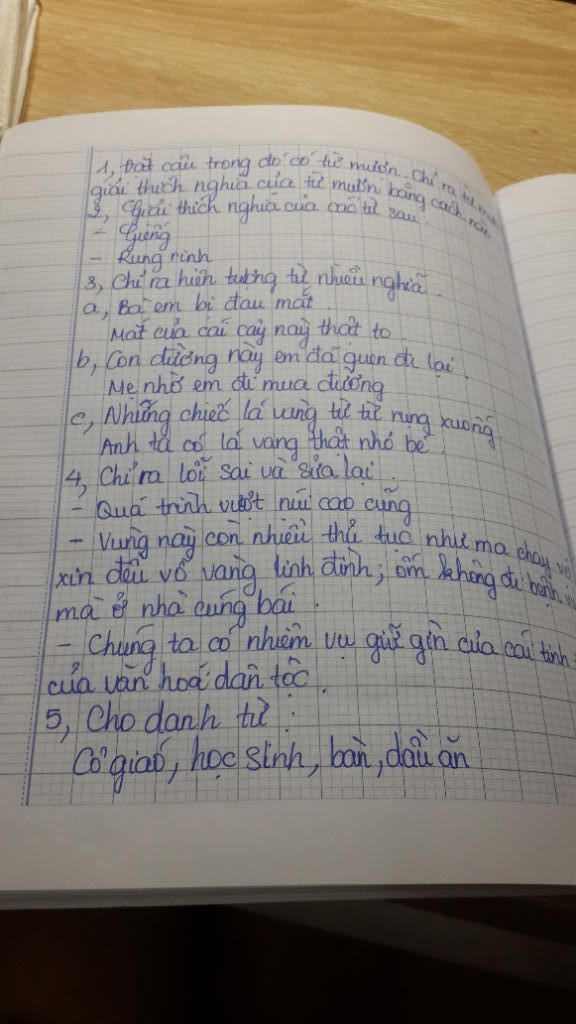 1, Đặt câu trong đó có từ mượn. Chỉ ra từ
giải thích nghĩa của từ mượn bằng cách nào
2, Giải thích nghĩa của các từ sau
- Giếng
- Rung rinh
3, Chỉ ra hiện tượng từ nhiều nghĩa.
a, Bà em bị đau mắt.
Mắt của cái cây này thật to
b, Con đường này em đã quen đi lại.
Mẹ nhờ em đi mua đường
c, Những chiếc lá vàng từ từ rụng xuống
Anh ta có lá vàng thật nhỏ bé.
4, Chỉ ra lỗi sai và sửa lại.
- Quá trình vượt núi cao cũng
- Vùng này còn nhiều thủ tục như ma chay
xin đều cỗ vàng linh đình; ốm không đi bệnh
mà ở nhà cúng bái.
- Chúng ta có nhiệm vụ giữ gìn của cái tinh
của văn hoá dân tộc.
5, Cho danh từ:
Cô giáo, học sinh, bàn, dầu ăn